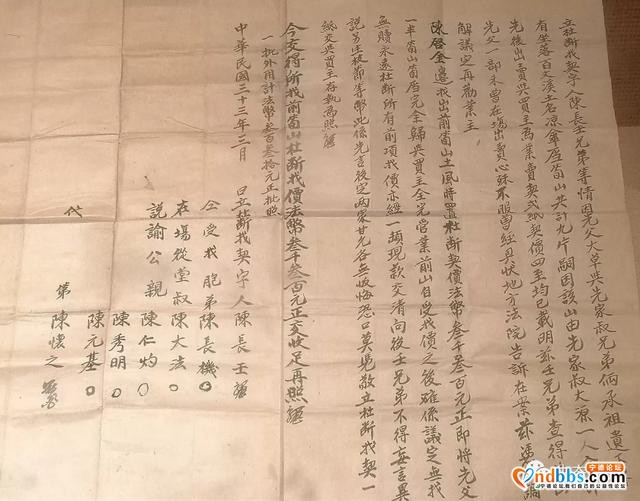 立杜断找契字人陳長壬兄弟等情因先父大草與先家叔兄弟倆承祖遺下
有坐落百丈溪土名凉傘厝笛山共计九片嗣因該山由先家叔大
先後出賣與買主為業賣契貳紙契價四至均已載明兹壬兄弟查得
先父一部未曾在場出賣心甦不服曾經具狀地方法院告訴在案兹
解議定再勸業主
陳啓金邊找出前笛山土風時置杜断契價法幣叁千叁百元正即將先父
一半笛山笛厝完全歸與買主全完管業前山自受找價之後確係議定無找
無贖永遠杜断所有前項找價亦經一頓現款交清向後壬兄弟不得妄言異
說另生枝節等弊此係先言後定兩家甘允各無收悔恐口莫憑敬立杜断找契一
紙交與買主存執為照
今交得所找前笛山杜断找價法幣叁千叁百元正交收足再照
一批外用計法幣叁百叁拾元正批照
中華民國三十三年三月 日立断找契字人陳長壬
仝受找胞弟陳長機
在場從堂叔陳大法
説諭公親 陳仁灼
陳秀明
陳元基
代 筆 陳懷之
ndbbs.com
宁德论坛